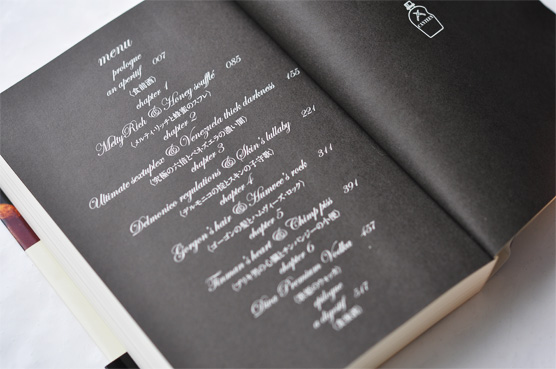 menu
prologue
an aperitif 007
(食前酒)
chapter 1
MeltyRich & Honey soufflé 085
(メルティリッチと蜂蜜のスフレ)
chapter 2
Ultimate sextuplex & Venezuela thick darkness 155
(究極の六倍とベネズエラの濃い闇)
chapter 3
Delmonico regulations & Skin's lullaby 221
(デルモニコの掟とスキンの子守歌)
chapter 4
Gorgon's hair & Hamvee's rock 311
(ゴーゴンの髪とハムヴィーズ・ロック)
chapter 5
Tinman's heart & Chimp piss 391
(ブリキ男の心臓とチンパンジーの小便)
chapter 6
Diva Premium Vodka 457
epilogue
a digestif 517
(食後酒)